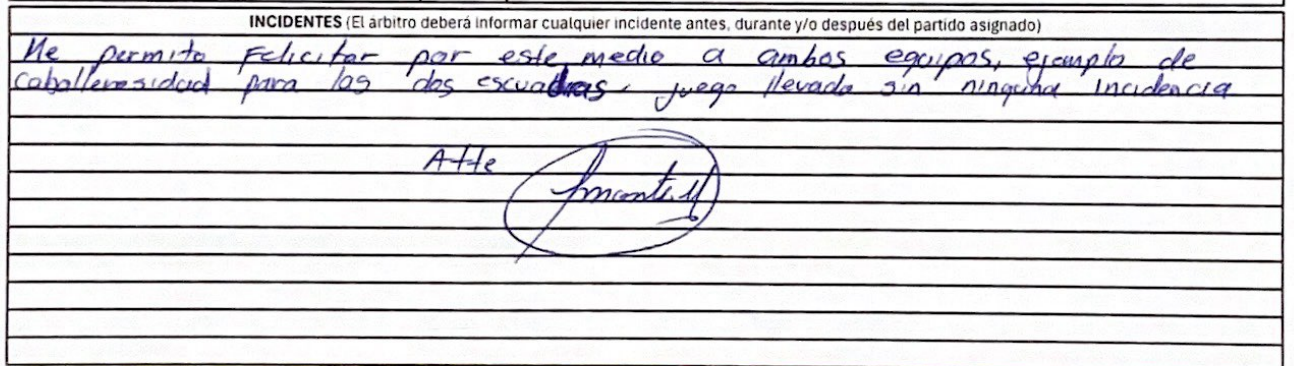 INCIDENTES (El árbitro deberá informar cualquier incidente antes, durante y/o después del partido asignado)
Me permito Felicitar por este medio a ambos equipos, ejemplo de
caballerosidad para las dos escuadras, juego llevado sin ninguna incidencia
Atte